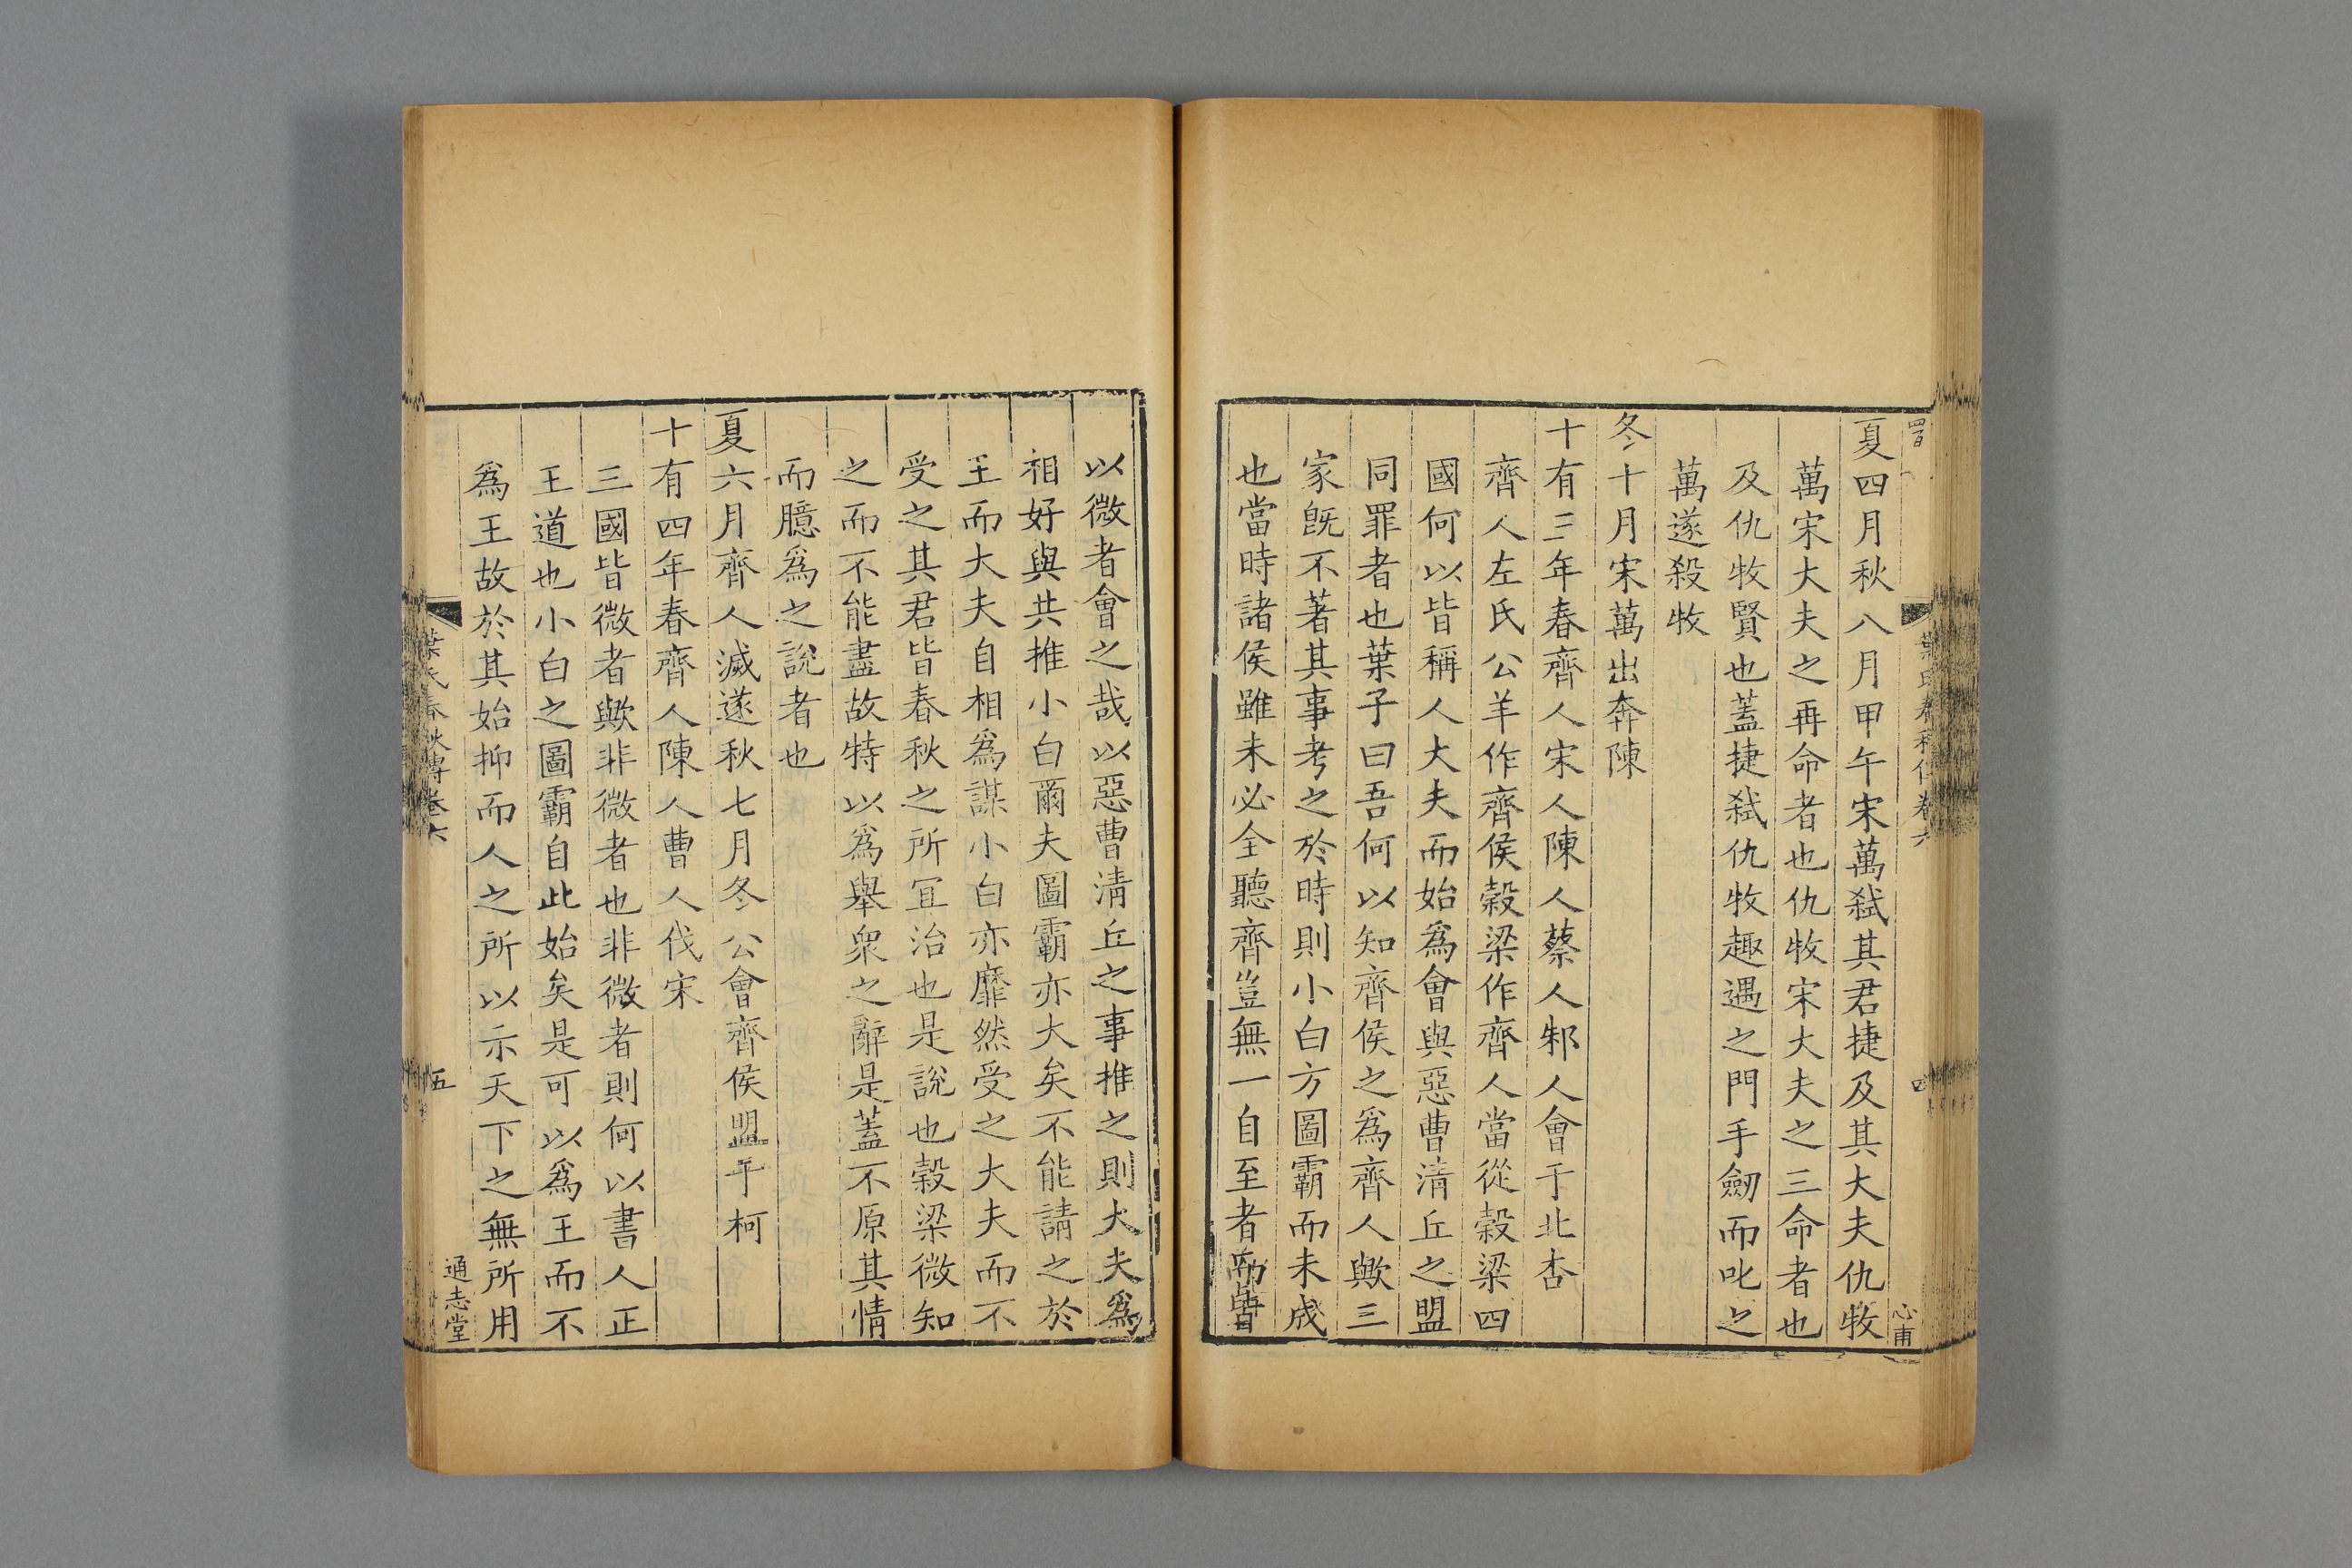 夏四月秋八月甲午宋萬弑其君捷及其大夫仇牧
萬宋大夫之再命者也仇牧宋大夫之三命者也
及仇牧賢也蓋捷弑仇牧趣遇之門手劒而叱之
萬遂殺牧
冬十月宋萬出奔陳
十有三年春齊人宋人陳人蔡人邾人會于北杏
齊人左氏公羊作齊侯榖梁作齊人當從榖梁四
國何以皆稱人大夫而始爲會與惡曹清丘之盟
同罪者也葉子曰吾何以知齊侯之爲齊人歟三
家既不著其事考之於時則小白方圖霸而未成
也當時諸侯雖未必全聽齊豈無一自至者而皆
心甫
以微者會之哉以惡曹清丘之事推之則大夫爲
相好與共推小白爾夫圖霸亦大矣不能請之於
王而大夫自相爲謀小白亦靡然受之大夫而不
受之其君皆春秋之所宜治也是說也榖梁微知
之而不能盡故特以爲舉衆之辭是蓋不原其情
而臆爲之說者也
夏六月齊人滅遂秋七月冬公會齊侯盟于柯
十有四年春齊人陳人曹人伐宋
三國皆微者歟非微者也非微者則何以書人正
王道也小白之圖霸自此始矣是可以爲王而不
爲王故於其始抑而人之所以示天下之無所用
葉氏春秋傳卷六
五
通志堂